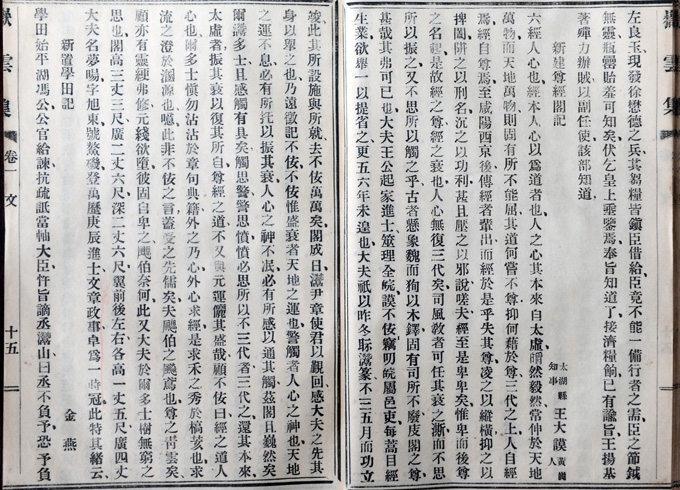 左良玉現發徐懋德之兵其芻糧皆鎮臣借給臣竟不能一備行者之需臣之節鉞
無靈瓶罍貽羞可知矣伏乞皇上乘鑒焉奉旨知道了接濟糧餉已有諭旨王揚基
著殫力辦賊以副任使該部知道
新建尊經閣記
太湖縣知事 王大謨 黃岡人
六經人心也經本人心以為道者也人之心其本來自太虛皭然毅然當伸於天地
萬物而天地萬物則固有所不能屈其道何嘗不尊抑何藉於尊三代之上人自經
焉經自尊焉至咸陽西京後傳經者輩出而經於是乎失其尊凌之以縱橫抑之以
捭闔阱之以刑名沉之以功利甚且壓之以邪說嗟夫經至是卑卑矣惟卑而後尊
之名起是故經之尊經之衰也人心無復三代矣司風教者可任其衰之漸而不思
所以振之又不思所以觸之乎古者懸象魏而狥以木鐸固有所不廢茂閣之尊
甚哉其弗可已也大夫王公起家進士筮理全皖謨不佞竊明皖屬邑吏每蒿目經
生業欲舉一以提省之更五六年未遑也大夫祇以昨冬眎灊篆不三五月而功立
竣此其所設施與所就去不佞萬萬矣閣成日灊尹章使君以觀回感大夫之先其
身以舉之也乃遠徵記不佞不佞惟盛衰者天地之運也警觸者人心之神也天地
之運不息必有所托以振其衰人心之神不泯必有所感以通其觸茲閣且巍然矣
爾灊多士且感觸有具矣觸思警警思憤憤必思所以不三代者三代之還其本來
太虛者振其衰以復其所自尊經之道不又與元運儷其盛哉顧不佞曰經之道人
心也爾多士慎勿沾沾於章句典籍外之乃心外心求經是求禾之秀於槁荄也求
流之澄於涸源也噫此非不佞之言蓋受之先儒矣夫颷伯之颷鳶也尊之青雲矣
顧亦有靈綆弗修元綫欲墮彼固自卑之颷伯奈何此又大夫於爾多士樹無窮之
思也閣高三丈三尺廣二丈六尺深二丈六尺翼前後左右各高一丈五尺廣四丈
大夫名夢暘字旭東號鰲磯登萬歷庚辰進士文章政事卓為一時冠此特其緒云
新置學田記
金燕
學田始平湖馮公公官給諫抗疏詆當軸大臣忤旨謫丞灊山曰丞不負予恐予負
嶽雲集
卷一 文
十五